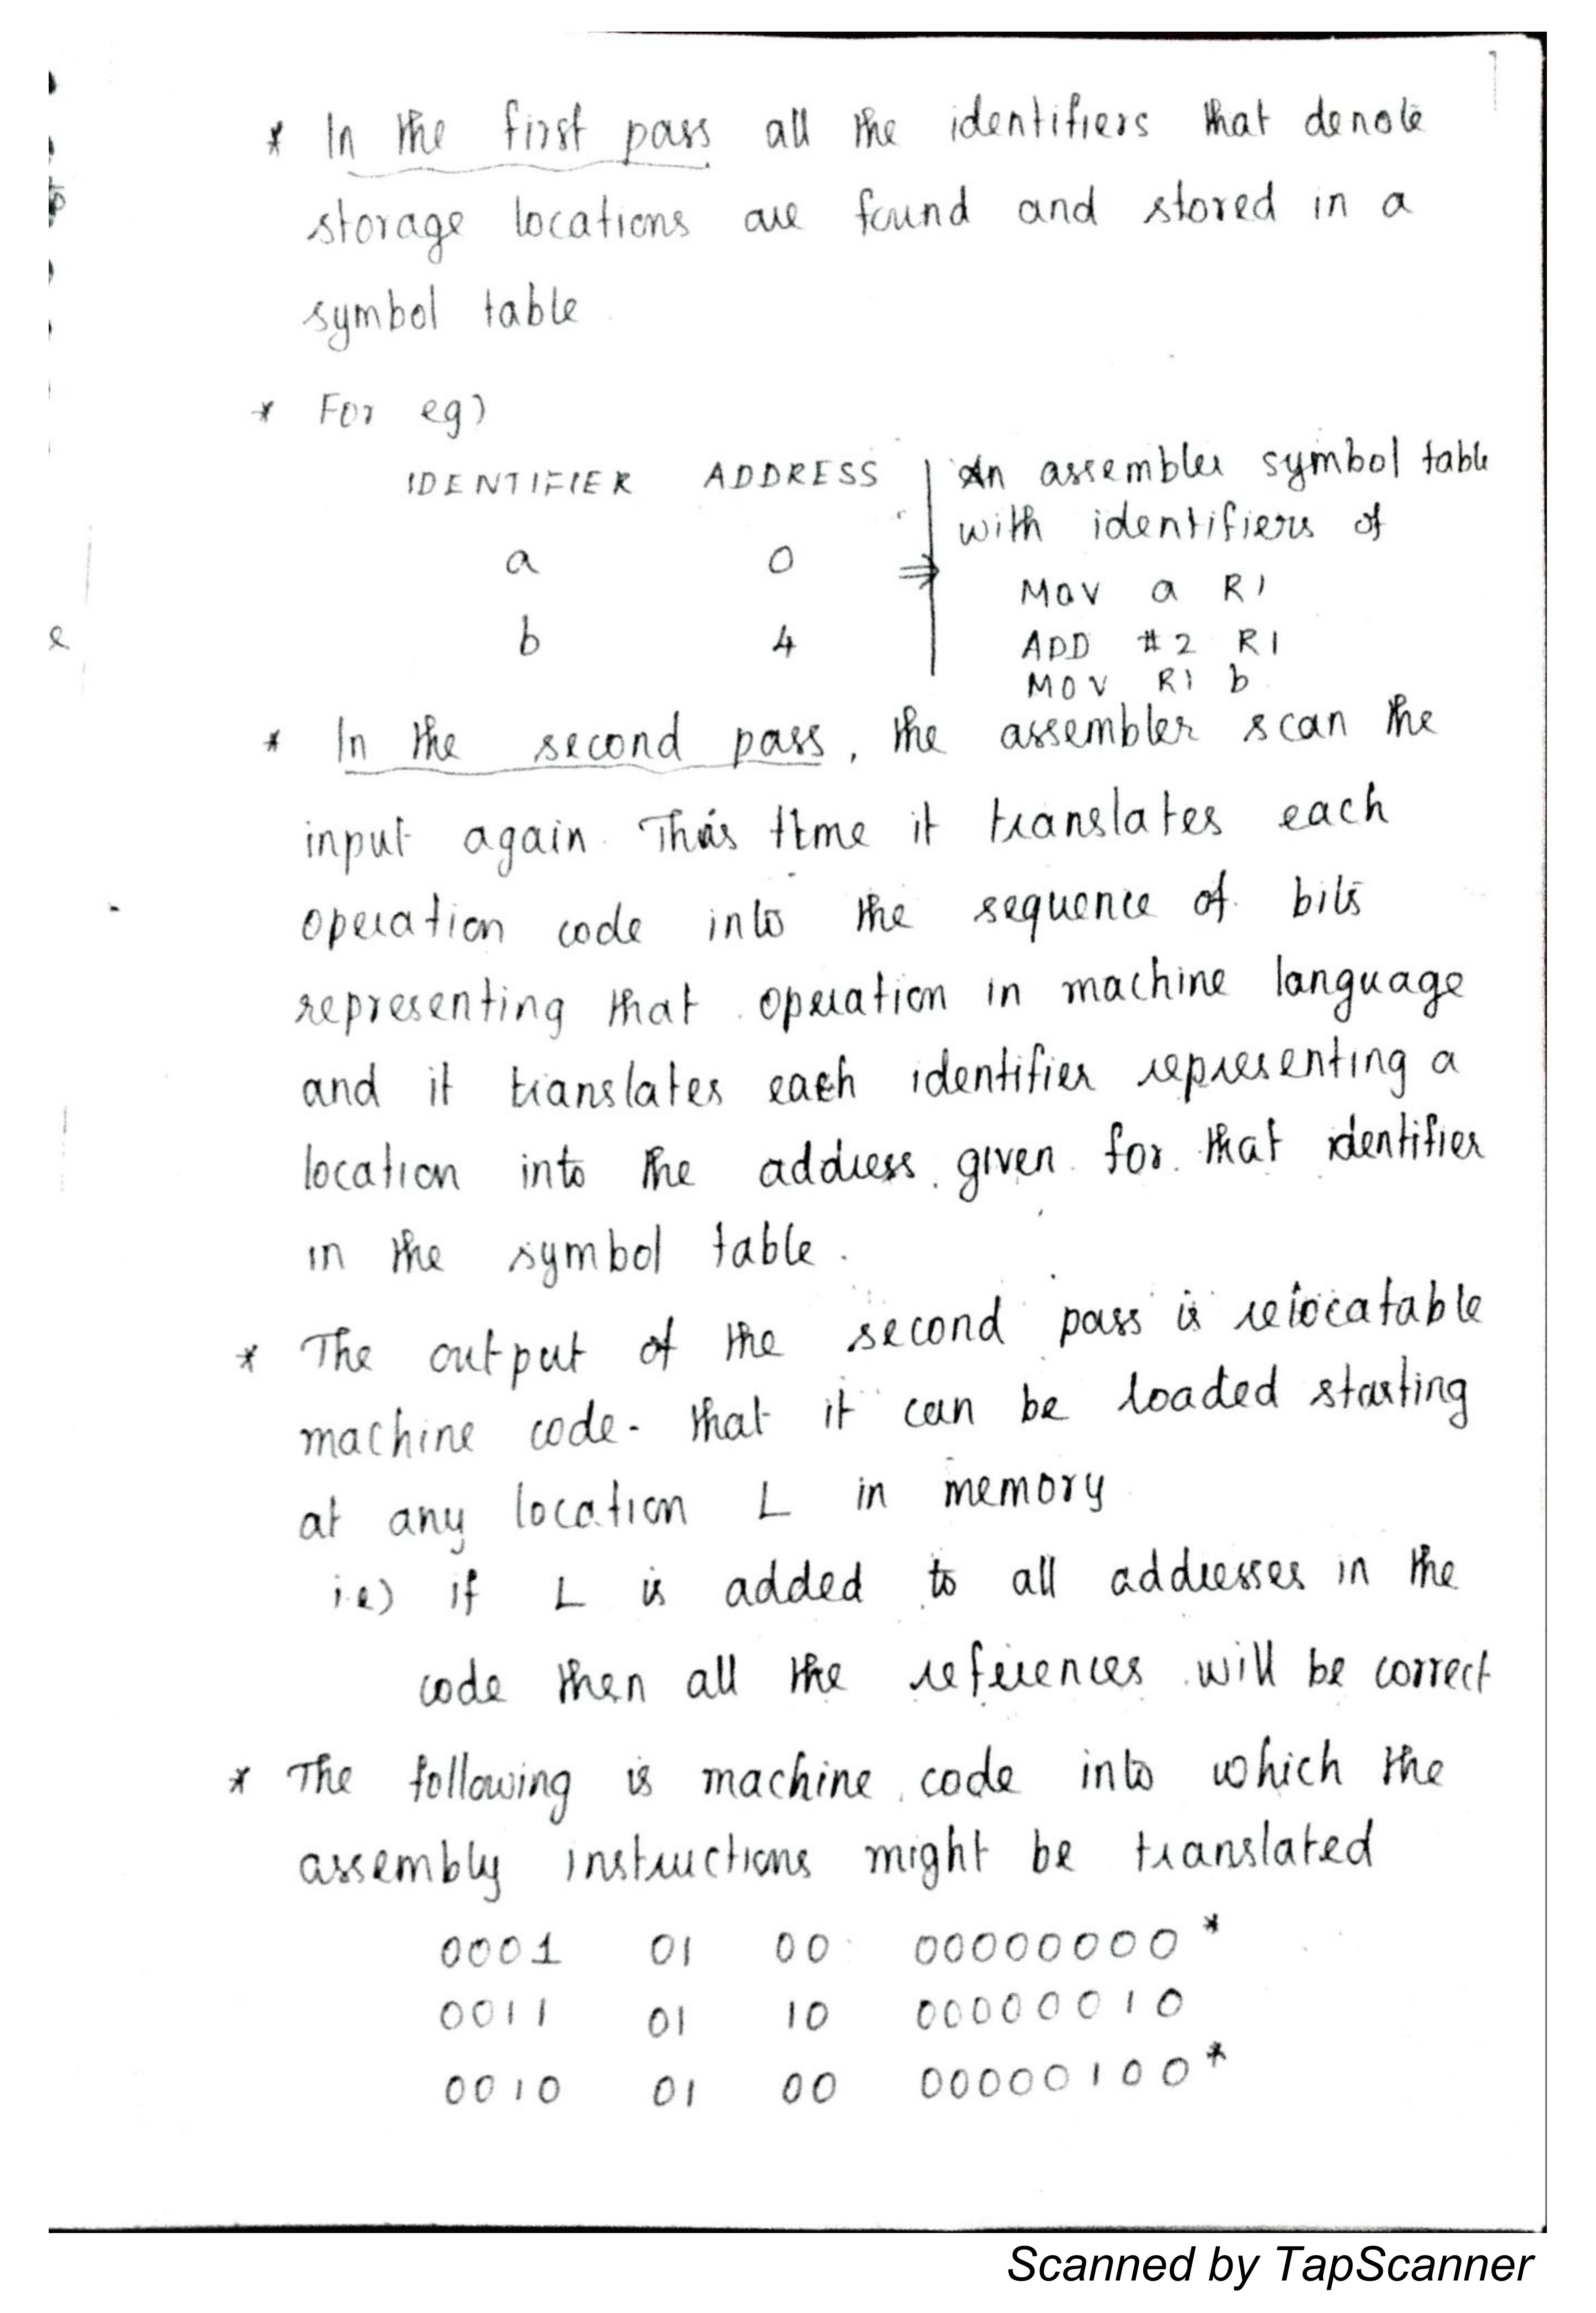 * In the first pass all the identifiers that denote
storage locations are found and stored in a
symbol table
* For eg)
IDENTIFIER ADDRESS An assembler symbol table
with identifiers of
a 0
⇒
MOV a R1
b 4 ADD #2 R1
MOV R1 b
* In the second pass, the assembler scan the
input again. This time it translates each
operation code into the sequence of bits
representing that operation in machine language
and it translates each identifier representing a
location into the address given for that identifier
in the symbol table.
* The output of the second pass is relocatable
machine code - that it can be loaded starting
at any location L in memory
i.e) if L is added to all addresses in the
code then all the references will be correct
* The following is machine code into which the
assembly instructions might be translated
0001 01 00 00000000*
0011 01 10 00000010
0010 01 00 00000100*
Scanned by TapScanner